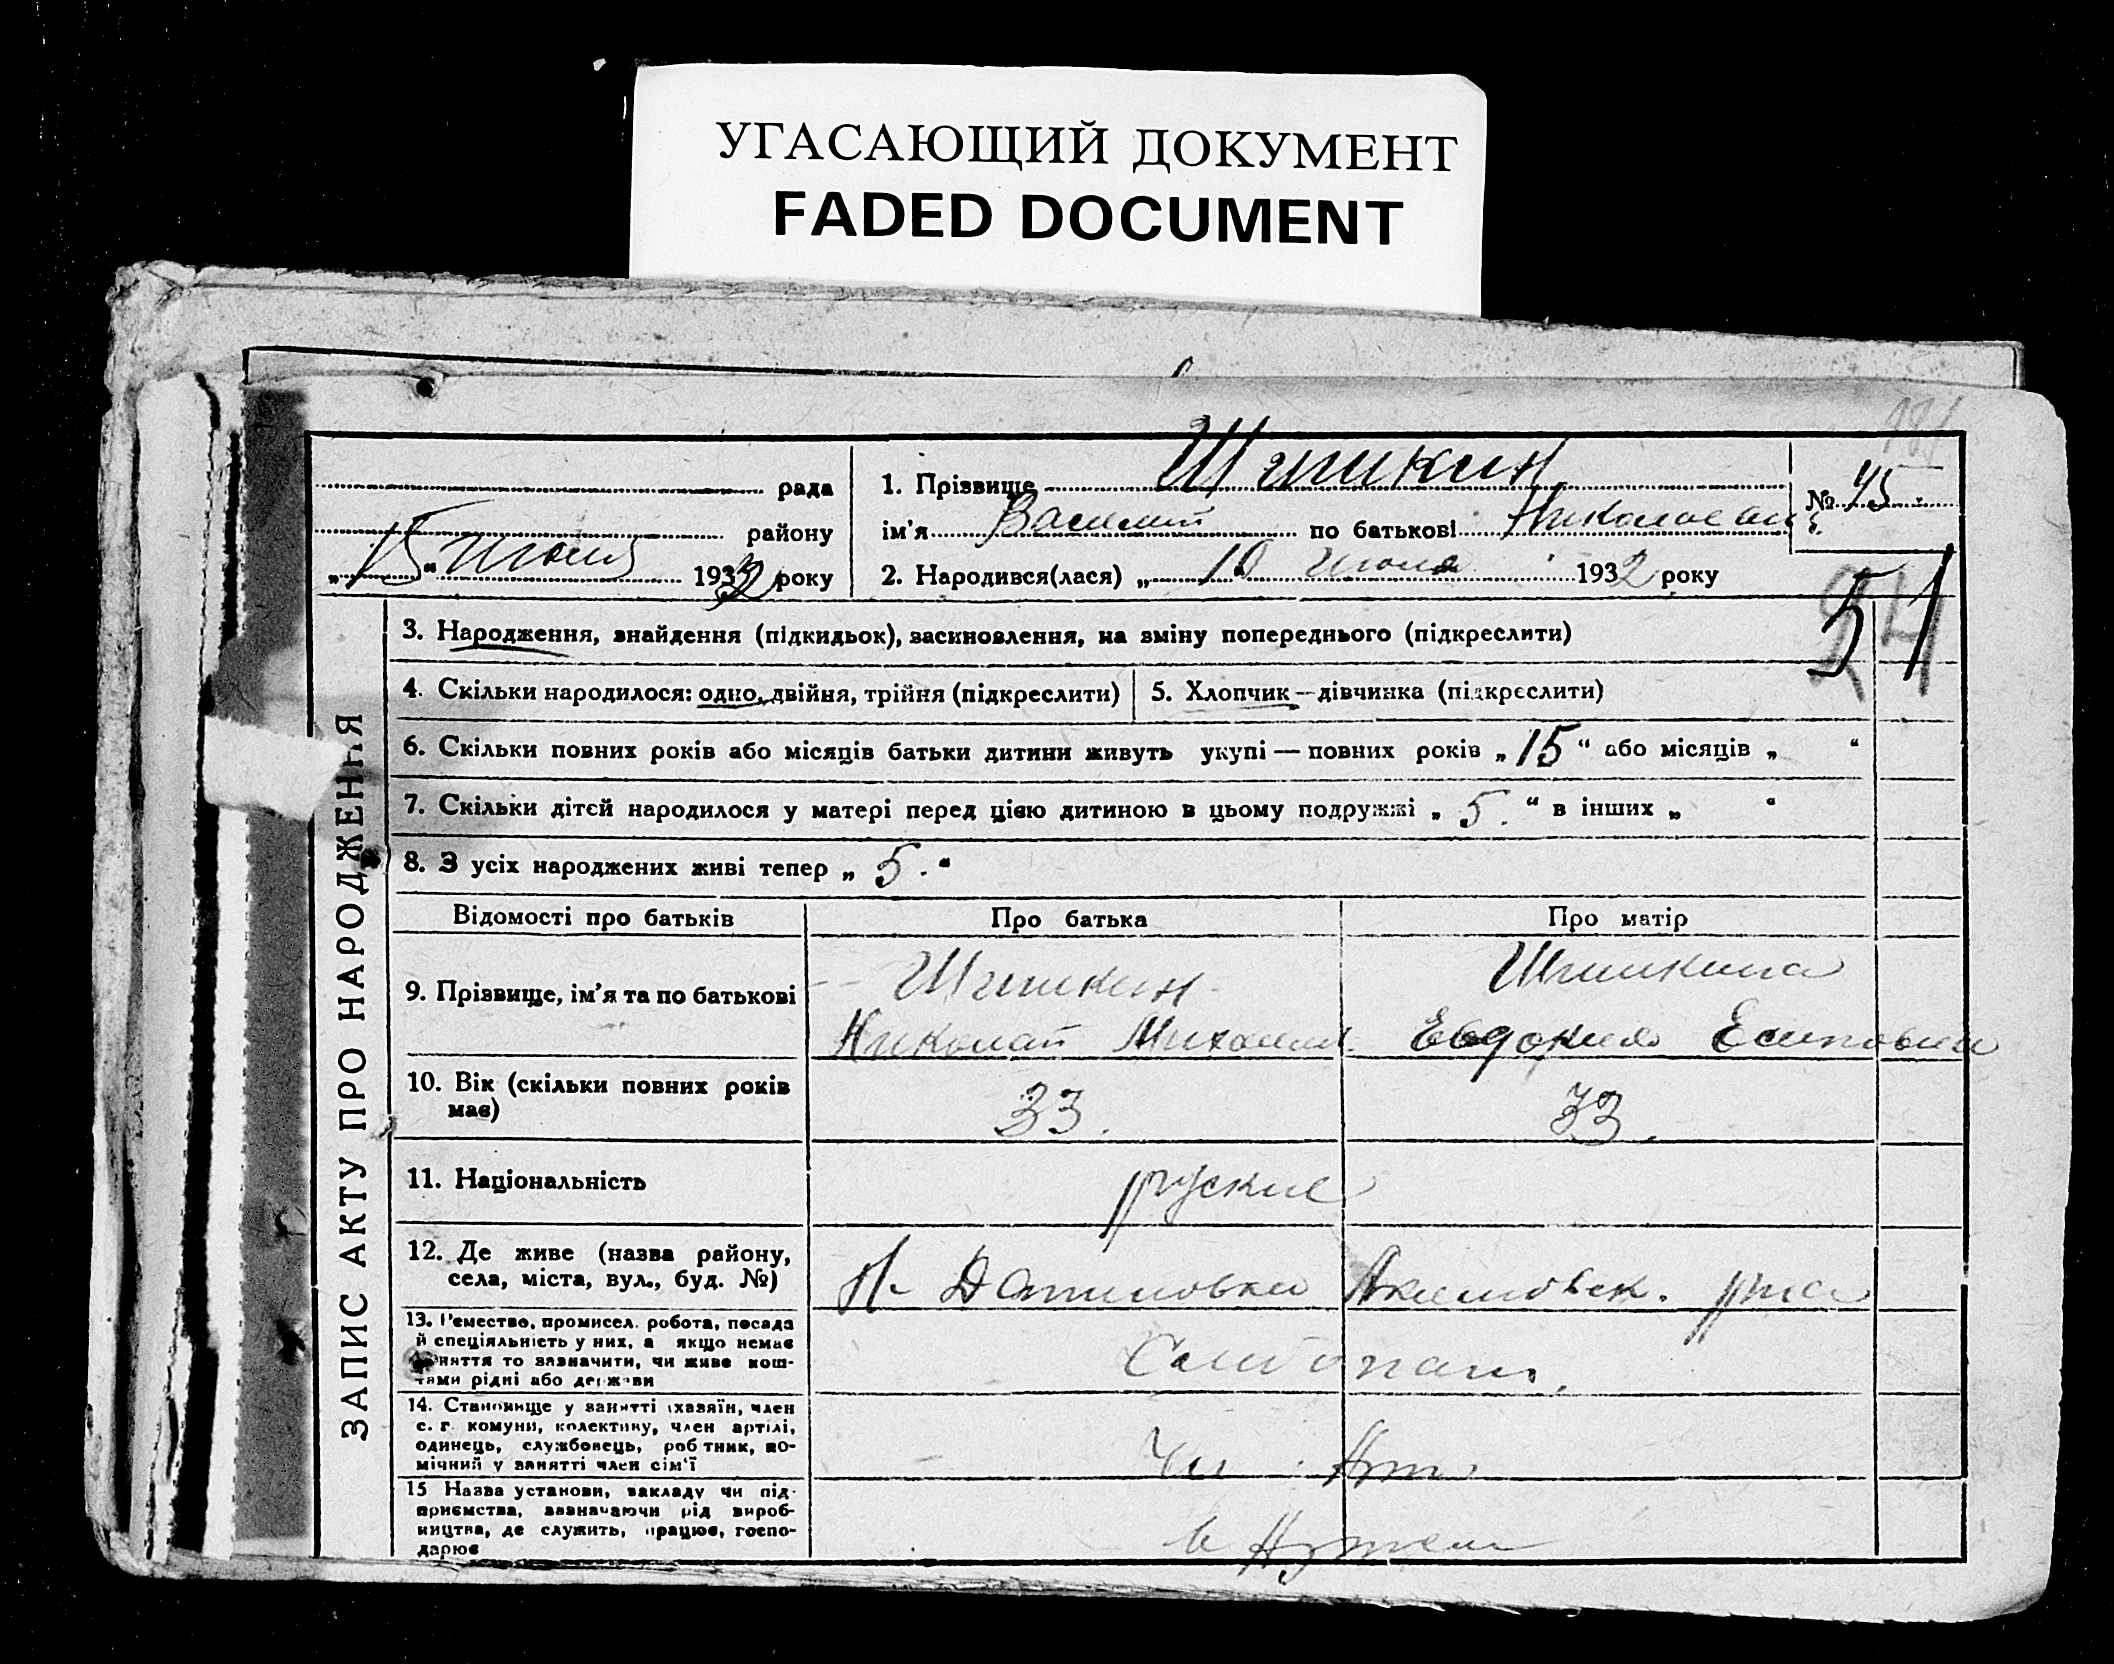 УГАСАЮЩИЙ ДОКУМЕНТ
FADED DOCUMENT
рада
району
„15“ Июля 1932 року
1. Прізвище Шишкин
ім'я Василий по батькові Николаевич
2. Народився(лася) „10 Июля 1932 року
№ 45
51
ЗАПИС АКТУ ПРО НАРОДЖЕННЯ
3. Народження, знайдення (підкидьок), засиновлення, на зміну попереднього (підкреслити)
4. Скільки народилося: одно, двійня, трійня (підкреслити)
5. Хлопчик — дівчинка (підкреслити)
6. Скільки повних років або місяців батьки дитини живуть укупі — повних років „15“ або місяців „ “
7. Скільки дітей народилося у матері перед цією дитиною в цьому подружжі „5.“ в інших „ “
8. З усіх народжених живі тепер „5.“
Відомості про батьків Про батька Про матір
9. Прізвище, ім'я та по батькові
Шишкин Шишкина
Николай Михаил. Евдокия Есиповна
10. Вік (скільки повних років має)
33. 33.
11. Національність
руские
12. Де живе (назва району, села, міста, вул., буд. №)
Акимовск. р-на
13. Ремество, промисел, робота, посада
й спеціяльність у них, а якщо немає
заняття то зазначити, чи живе кош-
тами рідні або держави
14. Становище у занятті (хазяїн, член
с. г. комуни, колективу, член артілі,
одинець, службовець, робітник, по-
мічний у занятті член сім'ї
Чл. Арт.
15 Назва установи, закладу чи під-
приємства, зазначаючи рід вироб-
ництва, де служить, працює, госпо-
дарює
в Артели